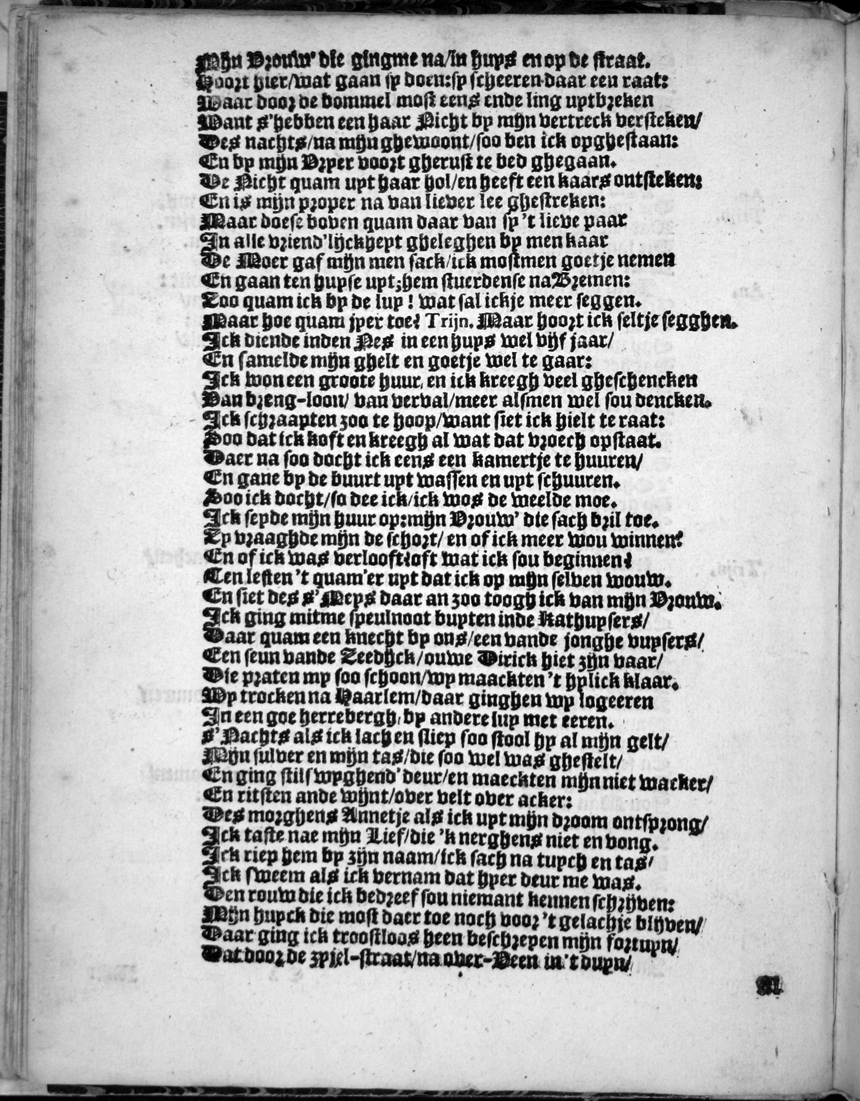 Mijn Vrouw' die gingme na/in huys en op de straat.
Hoort hier/wat gaan sy doen:sy scheeren daar een raat:
Maar door de bommel most eens ende ling uytbreken
Want s'hebben een haar Nicht by mijn vertreck versteken/
Des nachts/na mijn ghewoont/soo ben ick opghestaan:
En by mijn Vryer voort gherust te bed ghegaan.
De Nicht quam uyt haar hol/en heeft een kaars ontsteken:
En is mijn proper na van liever lee ghestreken:
Maar doese boven quam daar van sy 't lieve paar
In alle vriend'lijckheyt gheleghen by men kaar
De Moer gaf mijn men sack/ick mostmen goetje nemen
En gaan ten huyse uyt;hem stuerdense na Bremen:
Zoo quam ick by de luy! wat sal ickje meer seggen.
Maar hoe quam jyer toe? Trijn. Maar hoort ick seltje segghen.
Ick diende inden Nes in een huys wel vijf jaar/
En samelde mijn ghelt en goetje wel te gaar:
Ick won een groote huur, en ick kreegh veel gheschencken
Van breng-loon/ van verval/meer alsmen wel sou dencken.
Ick schraapten zoo te hoop/want siet ick hielt te raat:
Soo dat ick koft en kreegh al wat dat vroech opstaat.
Daer na soo docht ick eens een kamertje te huuren/
En gane by de buurt uyt wassen en uyt schuuren.
Soo ick docht/so dee ick/ick was de weelde moe.
Ick seyde mijn huur op:mijn Vrouw' die sach bril toe.
Zy vraaghde mijn de schort/ en of ick meer wou winnen?
En of ick was verlooft?oft wat ick sou beginnen?
Ten lesten 't quam'er uyt dat ick op mijn selven wouw.
En siet des s'Meys daar an zoo toogh ick van mijn Vrouw.
Ick ging mitme speulnoot buyten inde Kathuysers/
Daar quam een knecht by ons/een vande jonghe vuysers/
Een seun vande Zeedijck/ouwe Dirick hiet zijn vaar/
Die praten my soo schoon/wy maackten 't hylick klaar.
Wy trocken na Haarlem/daar ginghen wy logeeren
In een goe herrebergh, by andere luy met eeren.
s'Nachts als ick lach en sliep soo stool hy al mijn gelt/
Mijn sulver en mijn tas/die soo wel was ghestelt/
En ging stilswyghend' deur/en maeckten mijn niet wacker/
En ritsten ande wijnt/over velt over acker:
Des morghens Annetje als ick uyt mijn droom ontsprong/
Ick taste nae mijn Lief/die 'k nerghens niet en vong.
Ick riep hem by zijn naam/ick sach na tuych en tas/
Ick sweem als ick vernam dat hyer deur me was.
Den rouw die ick bedreef sou niemant kennen schrijven:
Mijn huyck die most daer toe noch voor 't gelachje blijven/
Daar ging ick troostloos heen beschreyen mijn fortuyn/
Dat door de zyjel-straat/na over-Veen in't duyn/